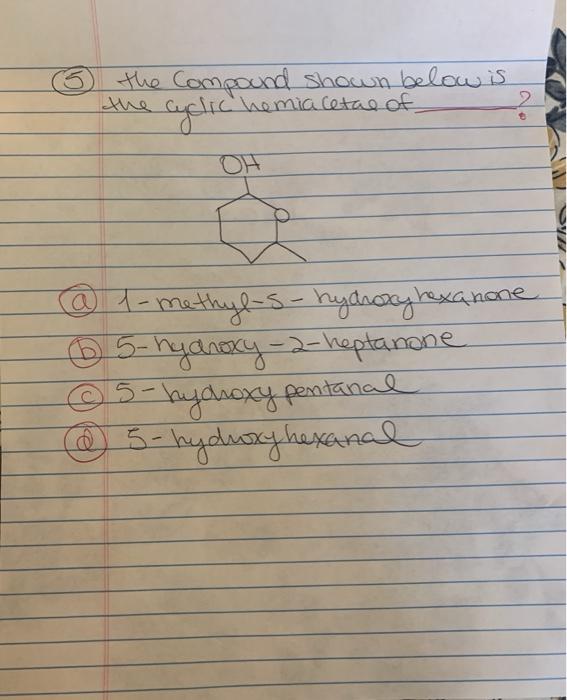 5 the Compound shown below is
the cyclic hemiacetae of ______?
OH
O
a 1-methyl-5-hydroxyhexanone
b 5-hydroxy-2-heptanone
c 5-hydroxy pentanal
d 5-hydroxyhexanal